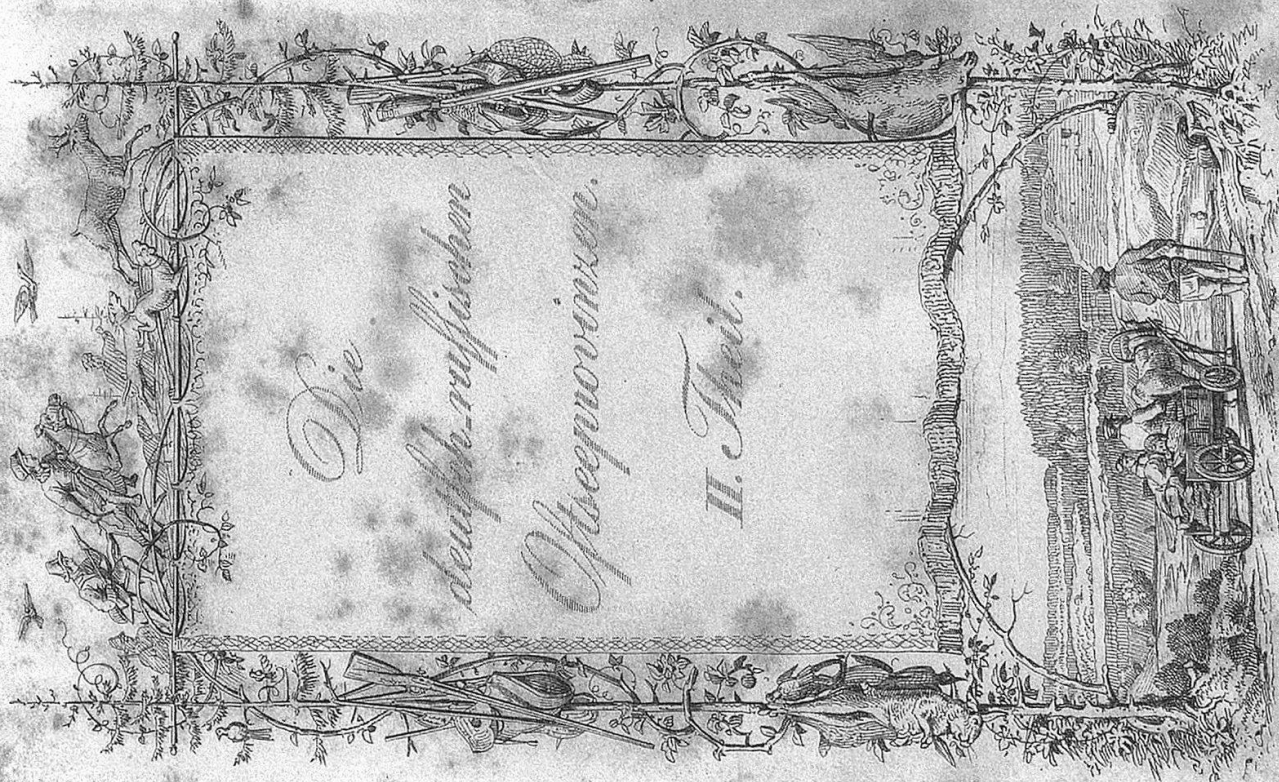 Die
deutſch-ruſſiſchen
Oſtseeprovinzen.
II. Theil.